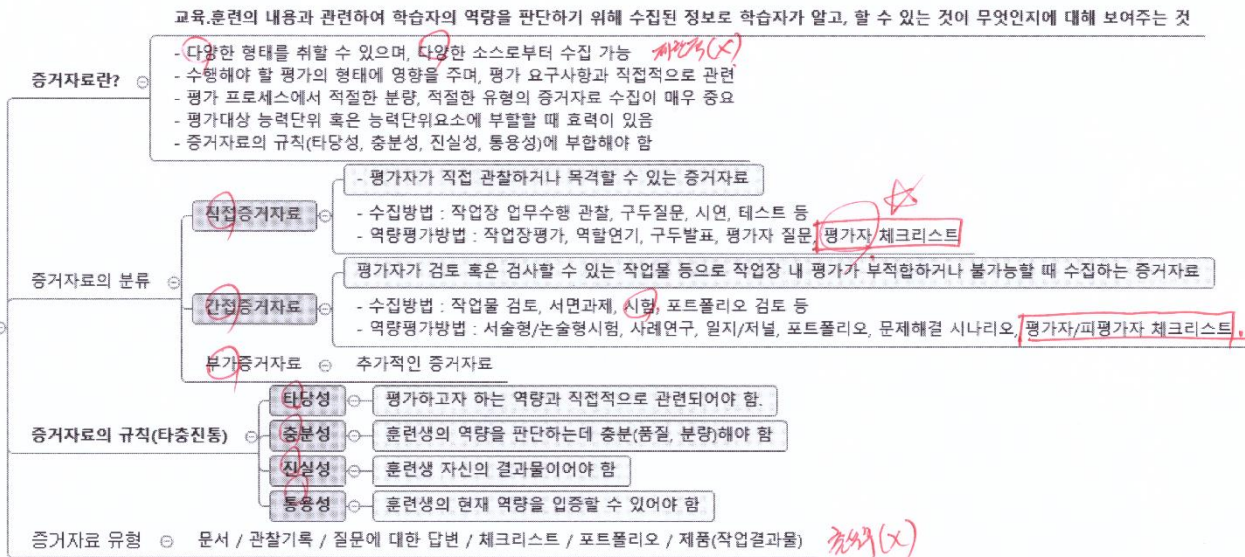 교육.훈련의 내용과 관련하여 학습자의 역량을 판단하기 위해 수집된 정보로 학습자가 알고, 할 수 있는 것이 무엇인지에 대해 보여주는 것
증거자료란?
- 다양한 형태를 취할 수 있으며, 다양한 소스로부터 수집 가능 제한적(X)
- 수행해야 할 평가의 형태에 영향을 주며, 평가 요구사항과 직접적으로 관련
- 평가 프로세스에서 적절한 분량, 적절한 유형의 증거자료 수집이 매우 중요
- 평가대상 능력단위 혹은 능력단위요소에 부할할 때 효력이 있음
- 증거자료의 규칙(타당성, 충분성, 진실성, 통용성)에 부합해야 함
증거자료의 분류
직접증거자료
- 평가자가 직접 관찰하거나 목격할 수 있는 증거자료
- 수집방법 : 작업장 업무수행 관찰, 구두질문, 시연, 테스트 등
- 역량평가방법 : 작업장평가, 역할연기, 구두발표, 평가자 질문, 평가자 체크리스트
간접증거자료
평가자가 검토 혹은 검사할 수 있는 작업물 등으로 작업장 내 평가가 부적합하거나 불가능할 때 수집하는 증거자료
- 수집방법 : 작업물 검토, 서면과제, 시험, 포트폴리오 검토 등
- 역량평가방법 : 서술형/논술형시험, 사례연구, 일지/저널, 포트폴리오, 문제해결 시나리오, 평가자/피평가자 체크리스트
부가증거자료 추가적인 증거자료
증거자료의 규칙(타충진통)
타당성 평가하고자 하는 역량과 직접적으로 관련되어야 함.
충분성 훈련생의 역량을 판단하는데 충분(품질, 분량)해야 함
진실성 훈련생 자신의 결과물이어야 함
통용성 훈련생의 현재 역량을 입증할 수 있어야 함
증거자료 유형 문서 / 관찰기록 / 질문에 대한 답변 / 체크리스트 / 포트폴리오 / 제품(작업결과물) (X)